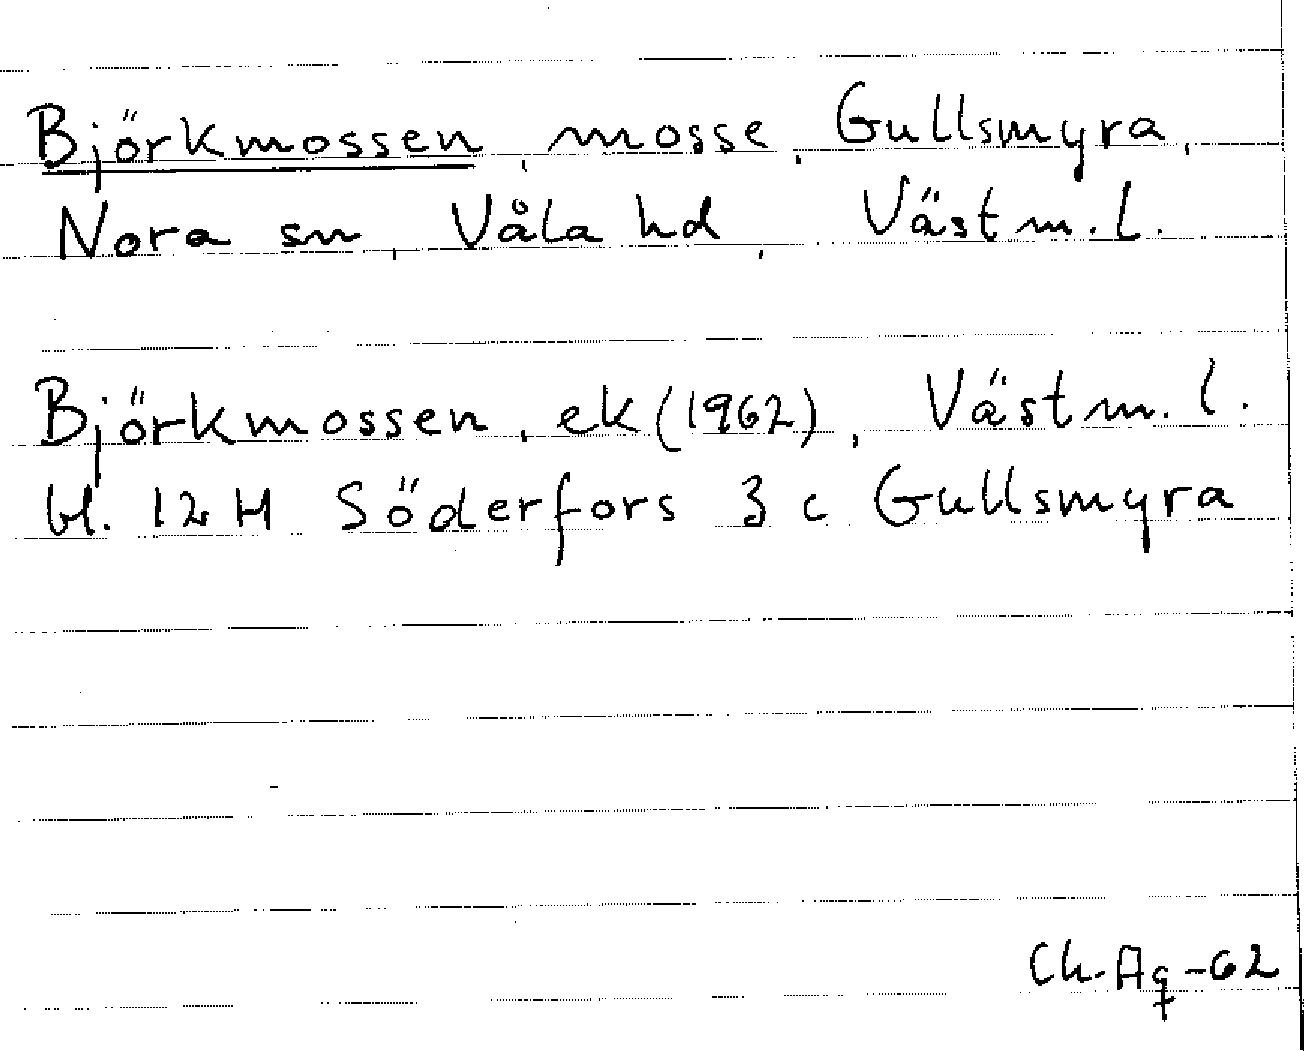 Björkmossen, mosse, Gullsmyra,
Nora sn, Våla hd, Västm. l.
Björkmossen, ek (1962), Västm. l.
bl. 12 H Söderfors 3 c Gullsmyra
Ch. Ag -62